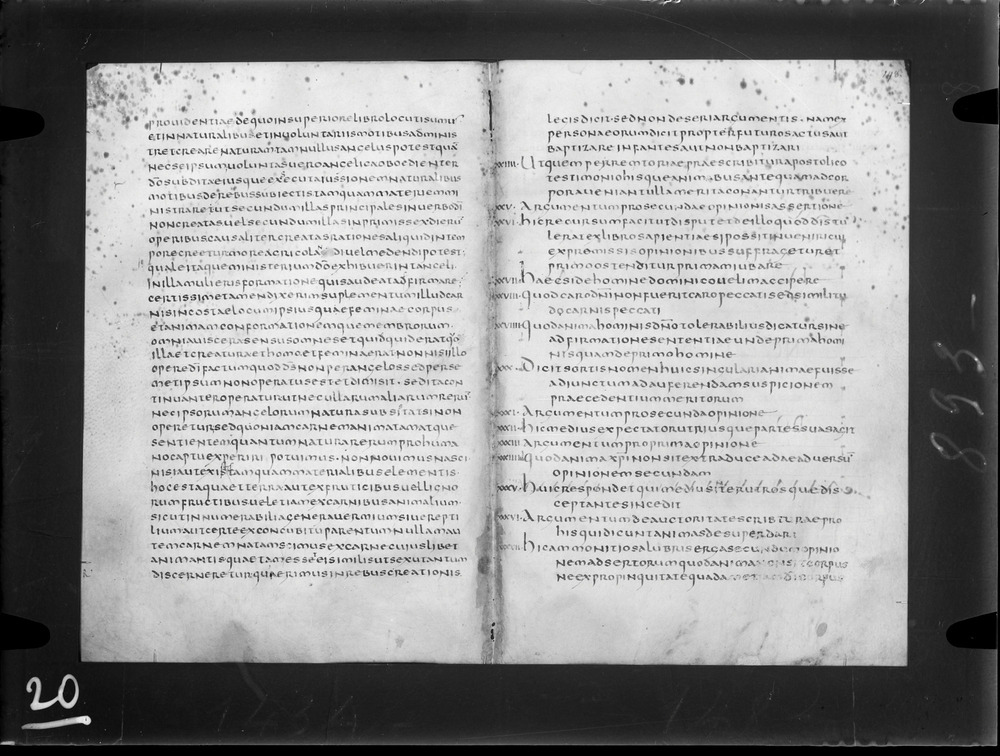 PROUIDENTIAE DE QUO IN SUPERIORE LIBRO LOCUTI SUMUS
ET IN NATURALIBUS ET IN UOLUNTARIIS MOTIBUS ADMINIS
TRET CREARE NATURAM TAM NULLUS ANGELUS POTEST QUA
NEC SE IPSUM UOLUNTAS UERO ANGELICA OBOEDIENTER
DO SUBDITA EIUSQUE EXECUTA IUSSIONEM NATURALIBUS
MOTIBUS DE REBUS SUBIECTIS TAMQUAM MATERIEM MI
NISTRARE UT SECUNDUM ILLAS PRINCIPALES IN UERBO DI
NON CREATAS UEL SECUNDUM ILLAS IN PRIMIS SEX DIERU
OPERIBUS CAUSALITER CREATAS RATIONES ALIQUID IN TEM
PORE CREETUR MORE AGRICOLAE DI UEL MEDENDI POTEST
QUALE ITAQUE MINISTERIUM DO EXHIBUERINT ANGELI
IN ILLA MULIERIS FORMATIONE QUIS AUDEAT ADFIRMARE
CERTISSIME TAMEN DIXERIM SUPLEMENTUM ILLUD CAR
NIS IN COSTAE LOCUM IPSIUSQUAE FEMINAE CORPUS
ET ANIMAM CONFORMATIONEMQUE MEMBRORUM
OMNIA UISCERA SENSUS OMNES ET QUIDQUID ERAT QUO
ILLA ET CREATURA ET HOMO ET FEMINA ERAT NON NISI ILLO
OPERE DI FACTUM QUOD DS NON PER ANGELOS SED PER SE
METIPSUM NON OPERATUS EST ET DIMISIT SED ITA CON
TINUANTER OPERATUR UT NEC ULLARUM ALIARUM RERUM
NEC IPSORUM ANGELORUM NATURA SUBSISTAT SI NON
OPERETUR SED QUONIAM CARNEM ANIMATAM ATQUE
SENTIENTEM QUANTUM NATURA RERUM PRO HUMA
NO CAPTU EXPERIRI POTUIMUS NON NOUIMUS NASCI
NISI AUT EX ISTAM QUAM MATERIALIBUS ELEMENTIS
HOC EST AQUAE TTERRA AUT EX FRUTICIBUS UEL LIGNO
RUM FRUCTIBUS UEL ETIAM EX CARNIBUS ANIMALIUM
SICUT INNUMERABILIA GENERA UERMIUM SIUE REPTI
LIUM AUT CERTE EX CONCUBITU PARENTUM NULLAM AU
TEM CARNEM NATAM SCIMUS EX CARNE CUIUSLIBET
ANIMANTIS QUAE TAM ESSET EI SIMILIS UT SEXU TANTUM
DISCERNERETUR QUAERIMUS IN REBUS CREATIONIS
LEGIS DICIT SED NON DE SERI ARGUMENTIS NAM EX
PERSONA EORUM DICIT PROPTER FUTUROS ACTUS AUT
BAPTIZARE INFANTES AUT NON BAPTIZARI
XXIIII UT QUEM PERREMTORIAE PRAESCRIBITUR APOSTOLICO
TESTIMONIO HISQUE ANIMABUS ANTEQUAM AD COR
PORA UENIANT ULLA MERITA CONANTUR TRIBUERE
XXV ARGUMENTUM PRO SECUNDAE OPINIONIS ASSERTIONE
XXVI HIC RECURSUM FACIT UT DISPUTET DE ILLO QUOD DISTU
LERAT EX LIBRO SAPIENTIAE SI POSSIT INUENIRI CUI
EXPRE MISSIS OPINIONIBUS SUFFRAGETUR ET
PRIMO OSTENDITUR PRIMAM IUBARE
XXVII HAEC SI DE HOMINE DOMINICO UELIM ACCIPERE
XXVIII QUOD CARO DNI NON FUERIT CARO PECCATI SED SIMILITU
DO CARNIS PECCATI
XXVIIII QUOD ANIMA HOMINIS DNO TOLERABILIUS DICATUR SINE
ADFIRMATIONE SENTENTIAE UNDE PRIMA HOMI
NIS QUAM DE PRIMO HOMINE
XXX DICIT SORTIS NOMEN HUIC SINGULARI ANIMAE FUISSE
ADIUNCTUM AD AUFERENDAM SUSPICIONEM
PRAECEDENTIUM MERITORUM
XXXI ARGUMENTUM PRO SECUNDA OPINIONE
XXXII HIC MEDIUS EXPECTATOR UTRIUSQUE PARTES SUAS AGIT
XXXIII ARGUMENTUM PRO PRIMA OPINIONE
XXXIIII QUOD ANIMA XPI NON SIT EX TRADUCE ADAE ADUERSUM
OPINIONEM SECUNDAM
XXXV HAUIC RESPONDET QUI MEDIUS INTER UTROSQUE DIS
CEPTANTES INCEDIT
XXXVI ARGUMENTUM DE AUCTORITATE SCRIBTURAE PRO
HIS QUI DICUNT ANIMAS DESUPER DARI
HIC AMMONITIO SALUBRIS ERGA SECUNDE OPINIO
NEM ADSERTORUM QUOD ANIMA NON SIT CORPUS
NE EX PROPINQUITATE QUADAM